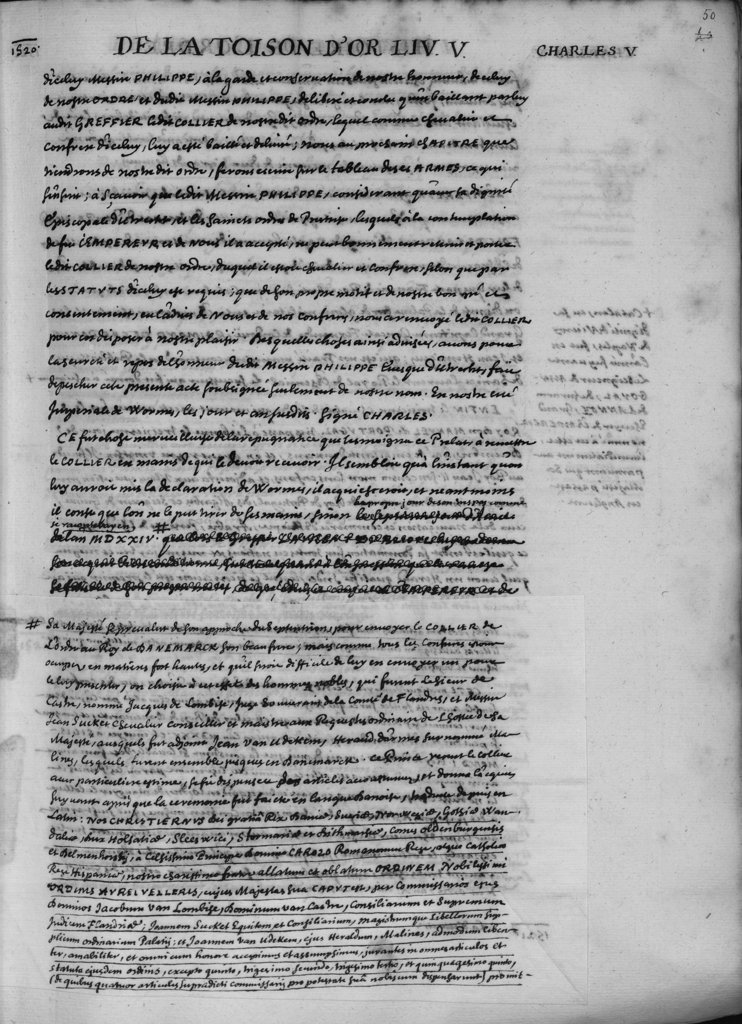 50
1520. DE LA TOISON D'OR LIV. V. CHARLES V.
d'iceluy Messire PHILIPPE, à la garde et conservation de nostre honneur, de celuy
de nostre ORDRE et dudit Messire PHILIPPE, deliberé et conclu qu'en baillant par luy
audit GREFFIER ledit COLLIER de nostredit ordre, lequel comme chevalier et
confrere d'iceluy, luy a esté baillé et delivré; nous au prochain CHAPITRE que
tiendrons de nostredit ordre, ferons escrire sur le tableau de ses ARMES, ce qui
s'ensuit; à sçavoir que ledit Messire PHILIPPE, considerant qu'avec sa dignité
Episcopale d'Utrecht, et les saincts ordres de Prestrise, lesquels à la contemplation
de feu L'EMPEREUR et de NOUS il a accepté, ne peut bonnement retenir et porter
ledit COLLIER de nostre ordre, duquel il estoit chevalier et Confrere, selon que par
les STATUTS d'iceluy est requis; que de son propre motif et de nostre bon gré et
consentement, en l'advis de Nous et de nos confreres, nous a renvoyé ledit COLLIER
pour en disposer à nostre plaisir. Desquelles choses ainsi advisées, avons pour
la seureté et repos de l'honneur dudit Messire PHILIPPE Evesque d'Utrecht, faict
depescher cete presente acte soubsignée seulement de nostre nom. En nostre cité
Imperiale de Worms, les jour et an susdits. Signé CHARLES.
Ce fut chose merveilleuse de la repugnance que tesmoigna ce Prelat à remettre
le COLLIER en mains de qui le devoit recevoir. Il sembloit qu'à l'instant qu'on
luy auroit mis la declaration de Wormes, il acquiesceroit, et neantmoins
il conste que l'on ne le put tirer de ses mains, sinon
de l'an MDXXIV. #
# Sa Majesté se prevalut de son approche du Septentrion, pour envoyer le COLLIER de
l'Ordre au Roy de DANEMARCK son beaufrere; mais comme tous les Confreres estoient
occupez en matieres fort hautes, et qu'il seroit difficile de luy en envoyer un pour
le luy presenter, on choisit à cet effet des hommes nobles, qui furent le Sieur de
Castre, nommé Jacques de Lombise, Juge Souverain de la Comté de Flandres, et Messire
Jean Sucket Chevalier Conseiller et maistre aux Requestes ordinaire de l'hostel de Sa
Majesté, ausquels fut adjoint Jean van Udekem, Heraud d'armes surnommé Ma-
lines, lesquels furent ensemble jusques en Danemarck. Ce Prince receut le collier
avec particuliere estime, se fit dispenser des articles aux armures, et donna l'acquies,
suyvant après que la ceremonie fut faicte en langue Danoise, traduite depuis en
Latin: Nos CHRISTIERNUS Dei gratia Rex Daniæ, Sueciæ, Norwegiæ, Gothiæ Wan-
daliæ, Dux Holsatiæ, Slesvici, Stormariæ et Dithmarsiæ, Comes Oldenburgensis
et Delmenhorstij, à Celsissimo Principe Domino CAROLO Romanorum Rege, atque Catholico
Rege Hispaniæ, nostro charissimo fratre allatum et oblatum ORDINEM Nobilissimi
ORDINIS AUREI VELLERIS, cujus Majestas sua CAPUT est, per Commissarios ejus
Dominos Jacobum van Lombise, Dominum van Castre, Consiliarium et Supremum
Judicem Flandriæ; Joannem Sucket Equitem et Consiliarium, magistrumque Libellorum sup-
plicum ordinarium Palatij; et Joannem van Udekem, ejus Heraldum, Malines, admodum liben-
ter, amabiliter, et omni cum honore accepimus et assumpsimus, jurantes in omnes articulos et
statuta ejusdem ordinis, excepto quinto, trigesimo secundo, trigesimo tertio, et quinquagesimo quinto,
(de quibus quatuor articulis supradicti commissarij pro potestate sua nobiscum dispensarunt) promit-